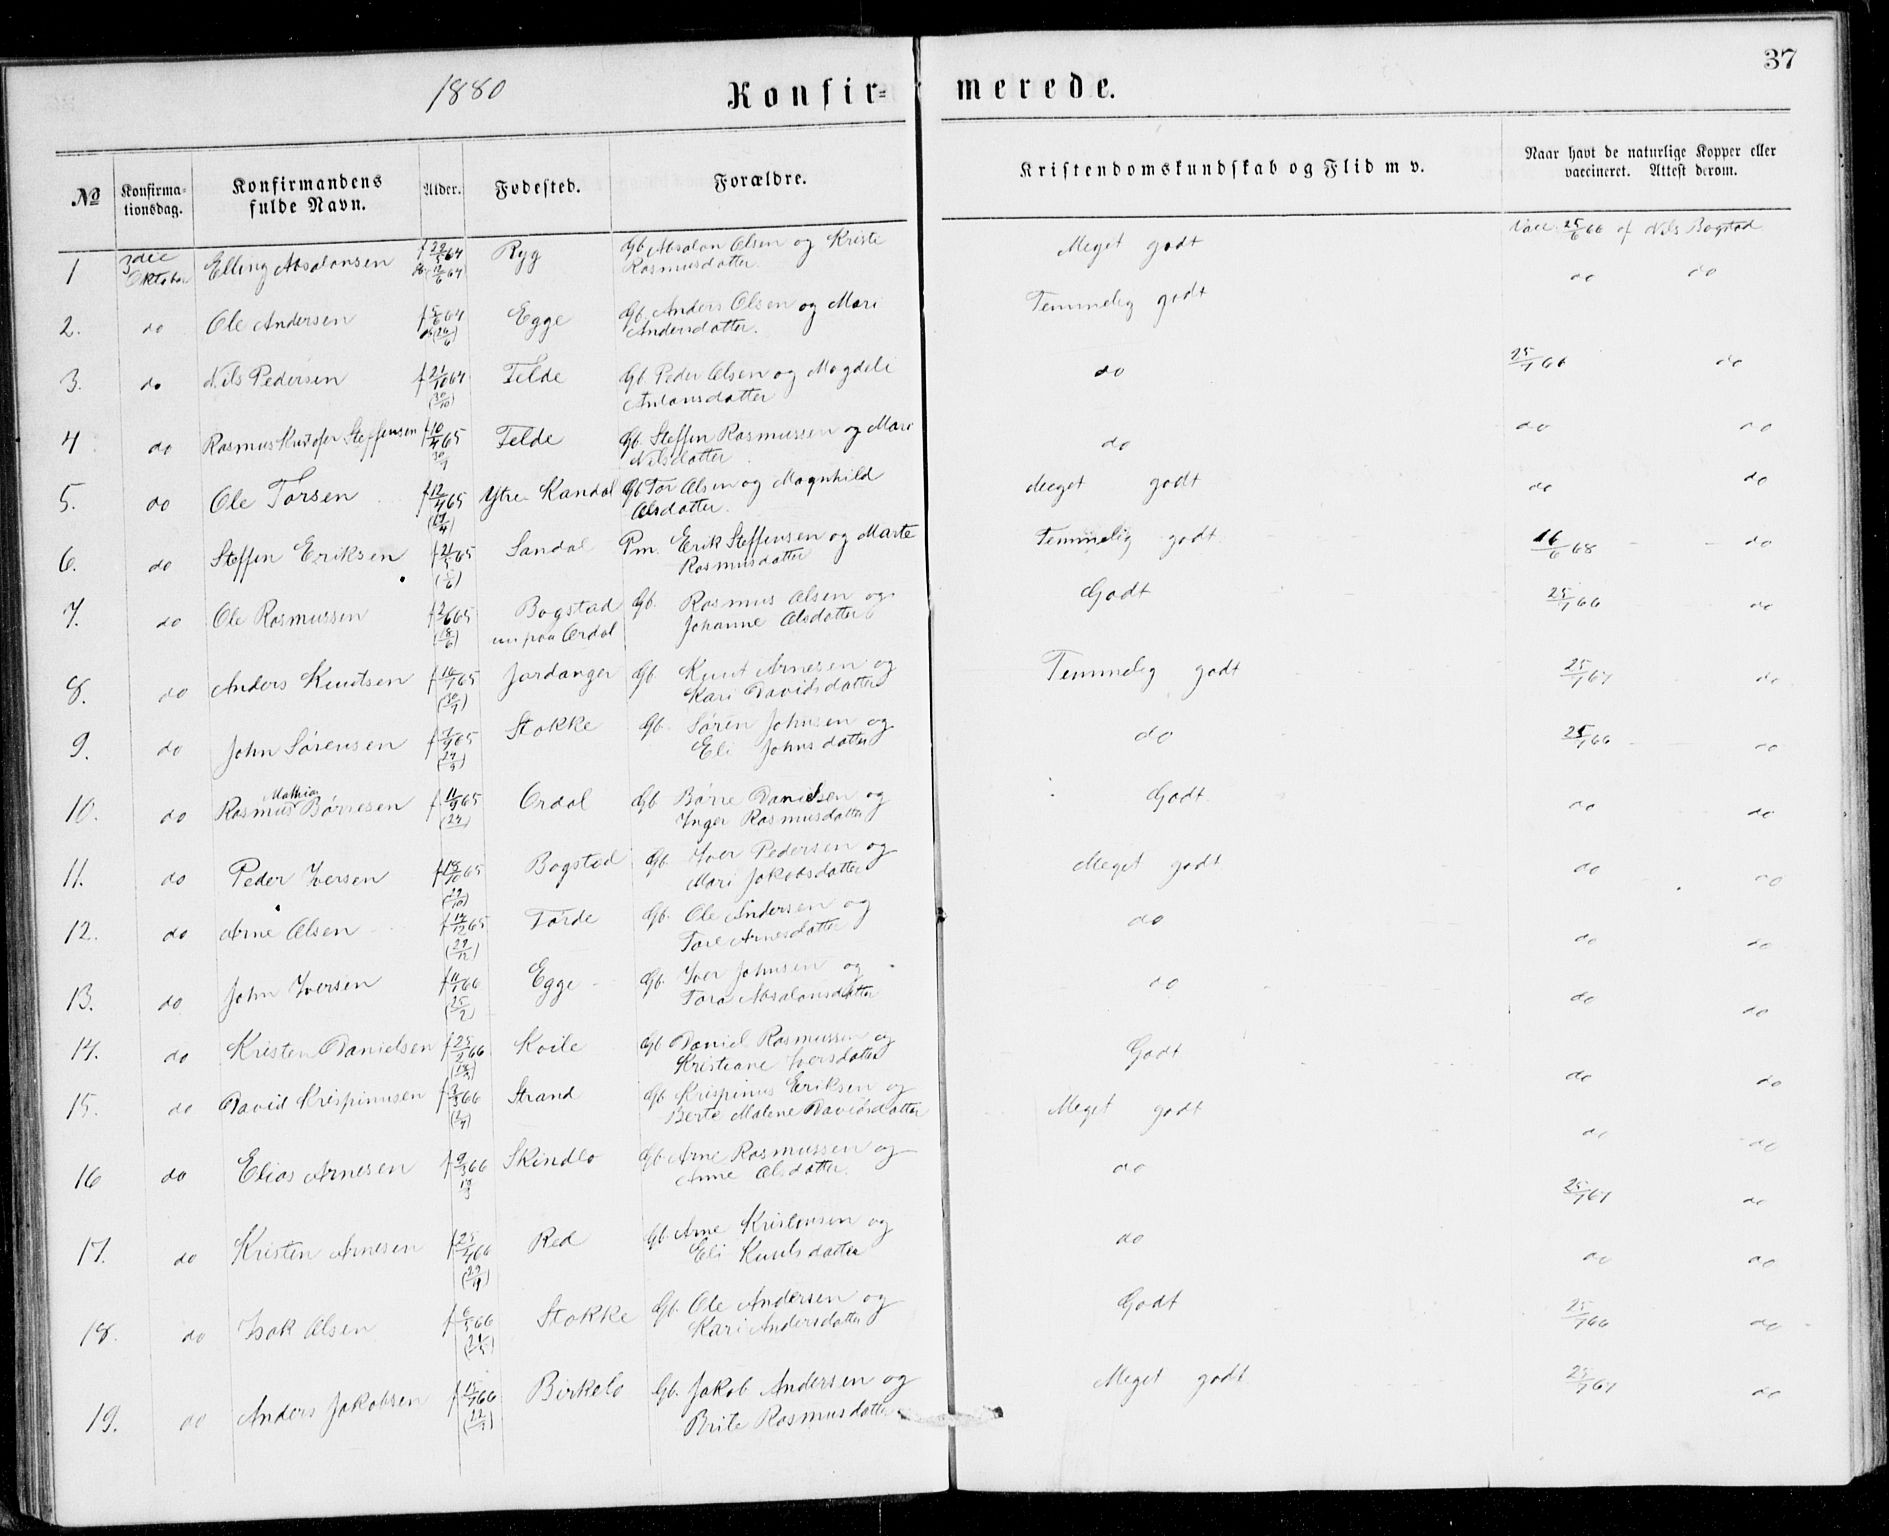 37
1880
Konfir- merede.
№ Konfirma-tionsdag. Konfirmandens fulde Navn. Alder. Fødested. Forældre. Kristendomskundskab og Flid m v. Naar havt de naturlige Kopper eller vaccineret. Attest derom.
1 3die Oktober Elling Absalonsen Ryg Gb. Absalon Olsen og Kriste Rasmusdatter. Meget godt Vacc. 25/6 66 af Nils Bogstad
2. do Ole Andersen Egge Gb. Anders Olsen og Mari Andersdatter. Temmelig godt do do
3. do Nils Pedersen f 21/10 64 (30/10) Felde Gb. Peder Olsen og Magdeli Antonsdatter do 25/7 66 do
4 do Rasmus Steffensen Felde Gb. Steffen Rasmussen og Mari Nilsdatter do do do
5. do Ole Torsen f 12/4 65 Ytre Kandal Gb Tor Olsen og Magnhild Olsdatter. Meget godt do do
6. do Steffen Eriksen Sandal Pm. Erik Steffensen og Marte Rasmusdatter Temmelig godt 16/6 68 do
7. do Ole Rasmussen Bogstad nu paa Ordal Gb. Rasmus Olsen og Johanne Olsdatter Godt 25/7 66 do
8. do Anders Knutsen f 16/7 65 (30/7) Jordanger Gb. Knut Arnesen og Kari Davidsdatter Temmelig godt 25/7 67 do
9. do John Sørensen Stokke Gb. Søren Johnsen og Eli Johnsdatter do 25/7 66 do
10. do Rasmus Mathias Børresen f 11/9 65 (24) Ordal Gb Børre Danielsen og Inger Rasmusdatter Godt do do
11. do Peder Iversen f 18/10 65 (29/10) Bogstad Gb. Iver Pedersen og Mari Jakobsdatter Meget godt do do
12. do Arne Olsen f 14/12 65 (29/12) Førde Gb. Ole Andersen og Arnesdatter do do do
13. do John Iversen (25/2) Egge Gb. Iver Johnsen og Tora Absalonsdatter do do do
14. do Kristen Danielsen f 25/2 66 Kvile Gb Daniel Rasmussen og Kristiane Iversdatter Godt do do
15. do David Krispinusen f 3/3 66 Strand Gb Krispinus Eriksen og Berte Malene Davidsdatter Meget godt do do
16 do Elias Arnesen f 9/3 66 Skindlo Gb. Arne Rasmussen og Anne Olsdatter. do 25/7 67 do
17. do Kristen Arnesen f 25/4 66 Red Gb. Arne Kristensen og Eli Knutsdatter do do do
18. do Isak Olsen f 6/5 66 (21/5) Stokke Gb. Ole Andersen og Kari Andersdatter Godt 25/7 66 do
19. do Anders Jakobsen Birkelo Gb. Jakob Andersen og Brite Rasmusdatter Meget godt 25/7 67 do